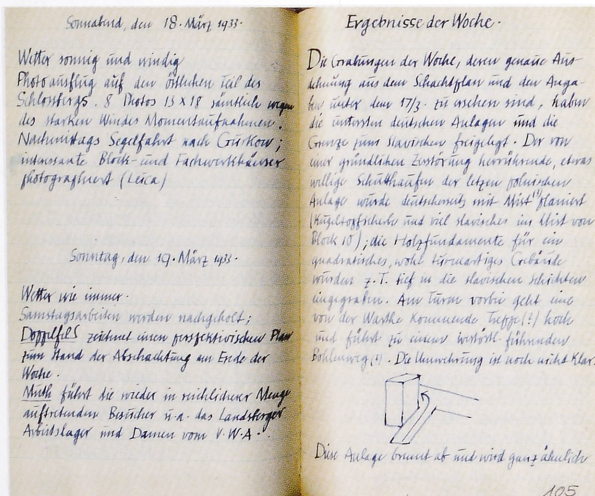 Sonnabend, den 18. März 1933.
Wetter sonnig und windig
Photoausflug auf den östlichen Teil des
Schlossbergs. 8 Photos 13 x 18 sämtlich wegen
des starken Windes Momentaufnahmen.
Nachmittags Segelfahrt nach Gurkow;
interessante Block- und Fachwerkhäuser
photographiert (Leica)
Sonntag, den 19. März 1933.
Wetter wie immer.
Samstagsarbeiten werden nachgeholt;
Doppelfeld zeichnet einen perspektivischen Plan
zum Stand der Abschachtung am Ende der
Woche.
Muth führt die wieder in reichlicherer Menge
auftretenden Besucher u. a. das Landsberger
Arbeitslager und Damen vom V.W.A.
Ergebnisse der Woche.
Die Grabungen der Woche, deren genaue Aus-
dehnung aus dem Schachtplan und den Anga-
ben unter dem 17/3. zu ersehen sind, haben
die untersten deutschen Anlagen und die
Grenze zum slavischen freigelegt. Der von
einer gründlichen Zerstörung herrührende, etwas
wellige Schutthaufen der letzten polnischen
Anlage wurde deutscherseits mit Mist (?) planiert
(Kugeltopfscherbe und viel slavisches im Mist von
Block 10); die Holzfundamente für ein
quadratisches, wohl turmartiges Gebäude
wurden z. T. tief in die slavischen Schichten
eingegraben. Am Turm vorbei geht eine
von der Warthe kommende Treppe (?) hoch
und führt zu einem westöstl. führenden
Bohlenweg (?). Die Umwehrung ist noch nicht klar.
Diese Anlage brennt ab und wird ganz ähnlich
105